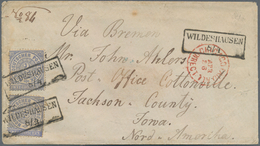 Via Bremen
WILDESHAUSEN
Mr. John Ahlers
Post Office Cottonville
Jackson County
Iowa
Nord-Amerika
WILDESHAUSEN
WILDESHAUSEN